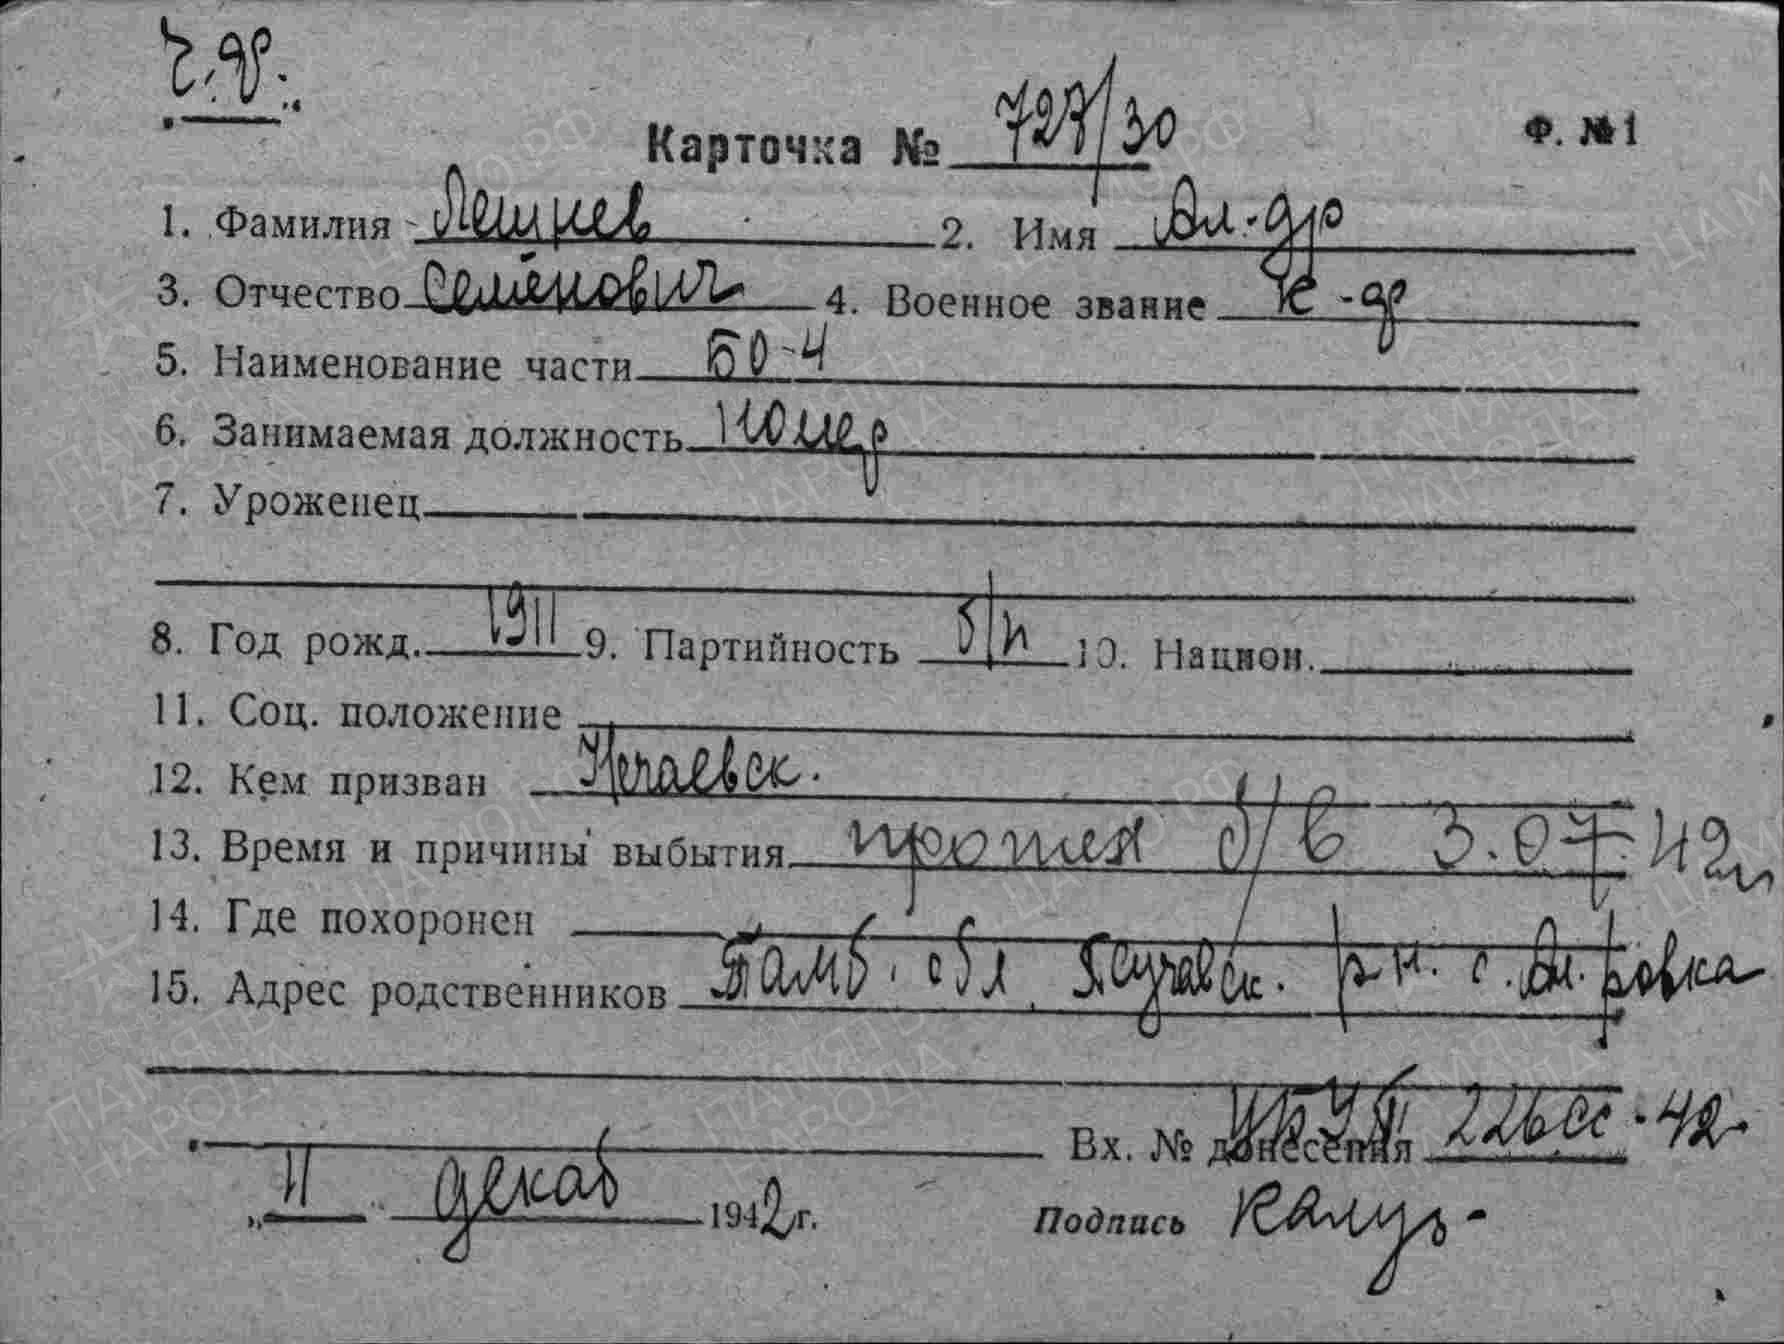 Карточка № 727/30 Ф. №1
1. Фамилия Лешнев 2. Имя Ал-др
3. Отчество Семёнович 4. Военное звание к-ф
5. Наименование части БО-4
6. Занимаемая должность
7. Уроженец
8. Год рожд. 1911 9. Партийность б/п 10. Национ.
11. Соц. положение
12. Кем призван Нечаевск.
13. Время и причины выбытия пропал б/в 3.07.42г
14. Где похоронен
15. Адрес родственников Тамб. обл. р-н. с. Ал.ровка
Вх. № донесения 226сс-42
„11 декаб 1942г.
Подпись